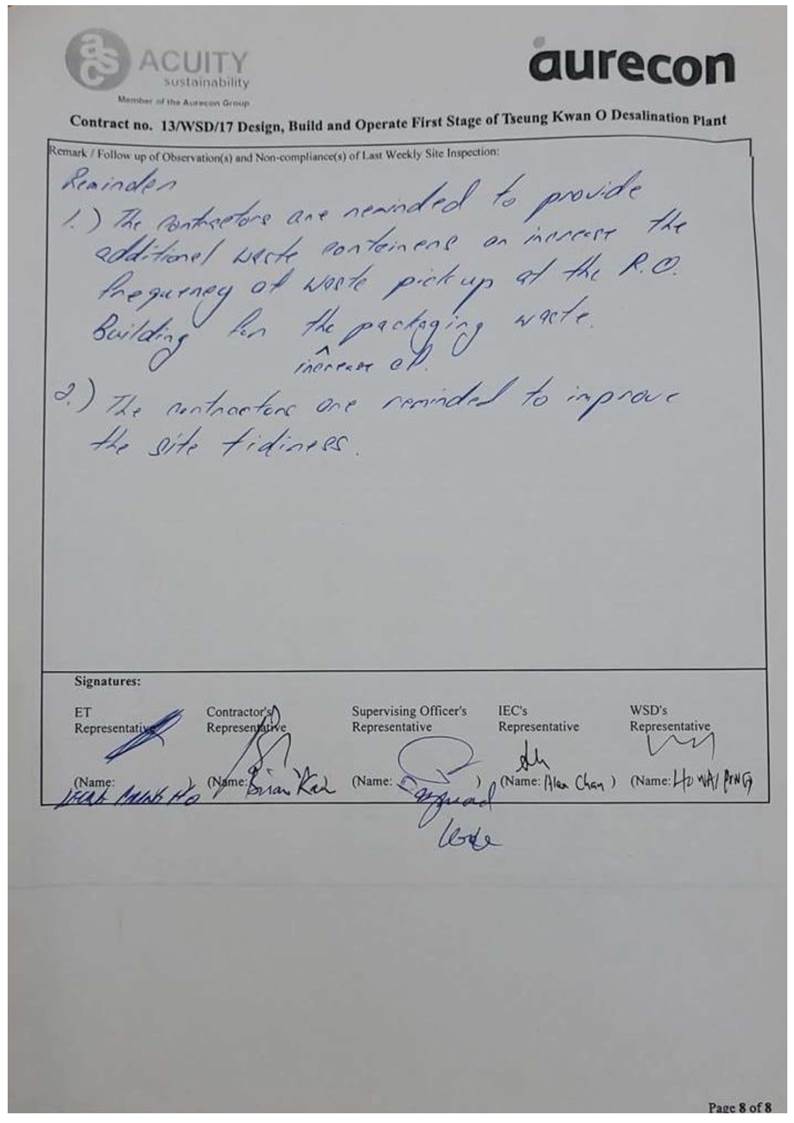 asc ACUITY
sustainability
Member of the Aurecon Group
aurecon
Contract no. 13/WSD/17 Design, Build and Operate First Stage of Tseung Kwan O Desalination Plant
Remark / Follow up of Observation(s) and Non-compliance(s) of Last Weekly Site Inspection:
Reminder
1.) The contractors are reminded to provide
additional waste containers or increase the
frequency of waste pick up at the R.O.
Building for the packaging waste.
^
increase of
2.) The contractors are reminded to improve
the site tidiness.
Signatures:
ET Representative
Contractor's Representative
Supervising Officer's Representative
IEC's Representative
WSD's Representative
(Name: )
(Name: Brian Kan
(Name: )
(Name: Alan Chan )
(Name: HO WAI
Page 8 of 8